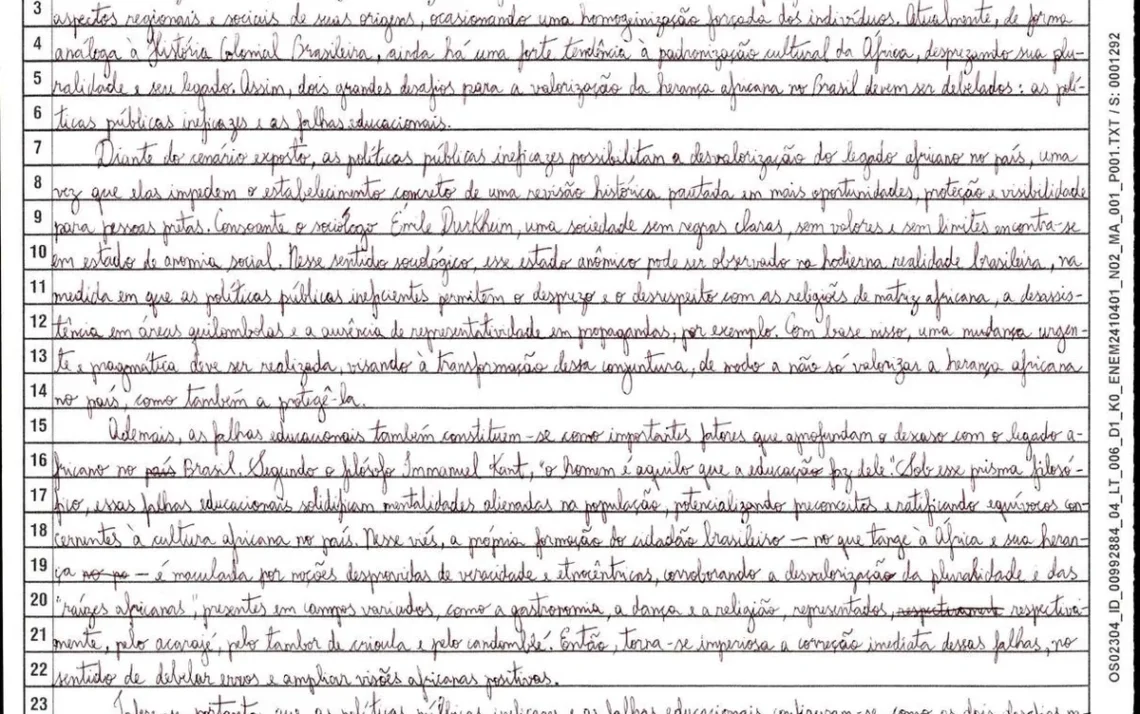 3 aspectos regionais e sociais de suas origens, ocasionando uma homogeinização forçada dos indivíduos. Atualmente, de forma
4 análoga à História Colonial Brasileira, ainda há uma forte tendência à padronização cultural da África, desprezando sua plu-
5 ralidade e seu legado. Assim, dois grandes desafios para a valorização da herança africana no Brasil devem ser debelados: as polí-
6 ticas públicas ineficazes e as falhas educacionais.
7 Diante do cenário exposto, as políticas públicas ineficazes possibilitam a desvalorização do legado africano no país, uma
8 vez que elas impedem o estabelecimento concreto de uma revisão histórica pautada em mais oportunidades, proteção e visibilidade
9 para pessoas pretas. Consoante o sociólogo Émile Durkheim, uma sociedade sem regras claras, sem valores e sem limites encontra-se
10 em estado de anomia social. Nesse sentido sociológico, esse estado anômico pode ser observado na hodierna realidade brasileira, na
11 medida em que as políticas públicas ineficientes permitem o desprezo e o desrespeito com as religiões de matriz africana, a desassis-
12 tência em áreas quilombolas e a ausência de representatividade em propagandas, por exemplo. Com base nisso, uma mudança urgen-
13 te e pragmática deve ser realizada, visando à transformação dessa conjuntura, de modo a não só valorizar a herança africana
14 no país, como também a protegê-la.
15 Ademais, as falhas educacionais também constituem-se como importantes fatores que aprofundam o descaso com o legado a-
16 fricano no país Brasil. Segundo o filósofo Immanuel Kant, "o homem é aquilo que a educação faz dele". Sob esse prisma filosó-
17 fico, essas falhas educacionais solidificam mentalidades alienadas na população, potencializando preconceitos e ratificando equívocos con-
18 cernentes à cultura africana no país. Nesse viés, a própria formação do cidadão brasileiro — no que tange à África e sua heran-
19 ça no pa — é maculada por noções desprovidas de veracidade e etnocêntricas, corroborando a desvalorização da pluralidade e das
20 "raízes africanas" presentes em campos variados, como a gastronomia, a dança e a religião, representados, respectivament respectiva-
21 mente, pelo acarajé, pelo tambor de crioula e pelo candomblé. Então, torna-se imperiosa a correção imediata dessas falhas, no
22 sentido de debelar erros e ampliar visões africanas positivas.
23 portanto, que as políticas públicas ineficazes e as falhas educacionais configuram-se como os dois desafios
OS02304_ID_00992884_04_LT_006_D1_K0_ENEM2410401_N02_MA_001_P001.TXT / S: 0001292